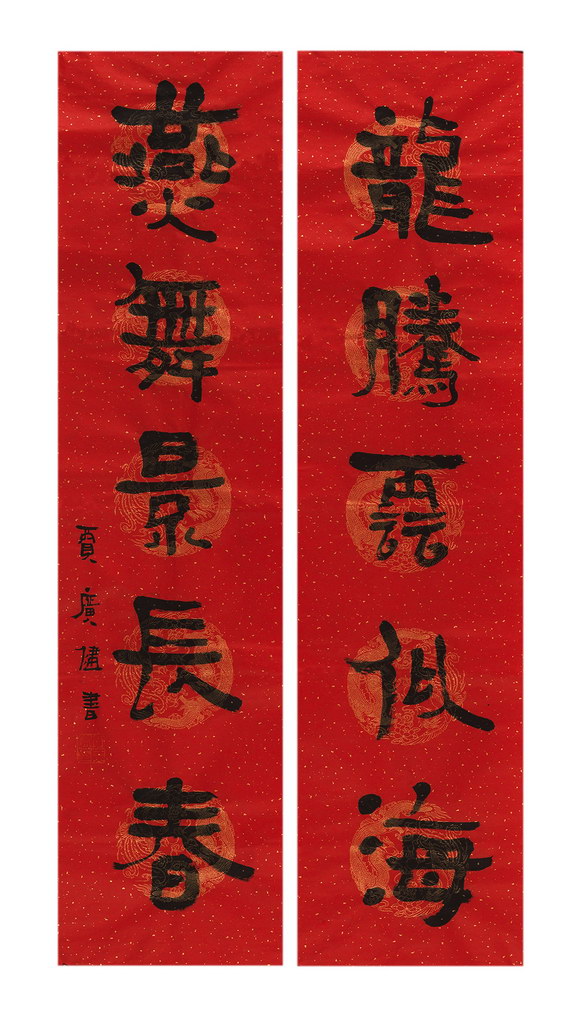 龍騰雲似海
燕舞景長春
賈廣健書